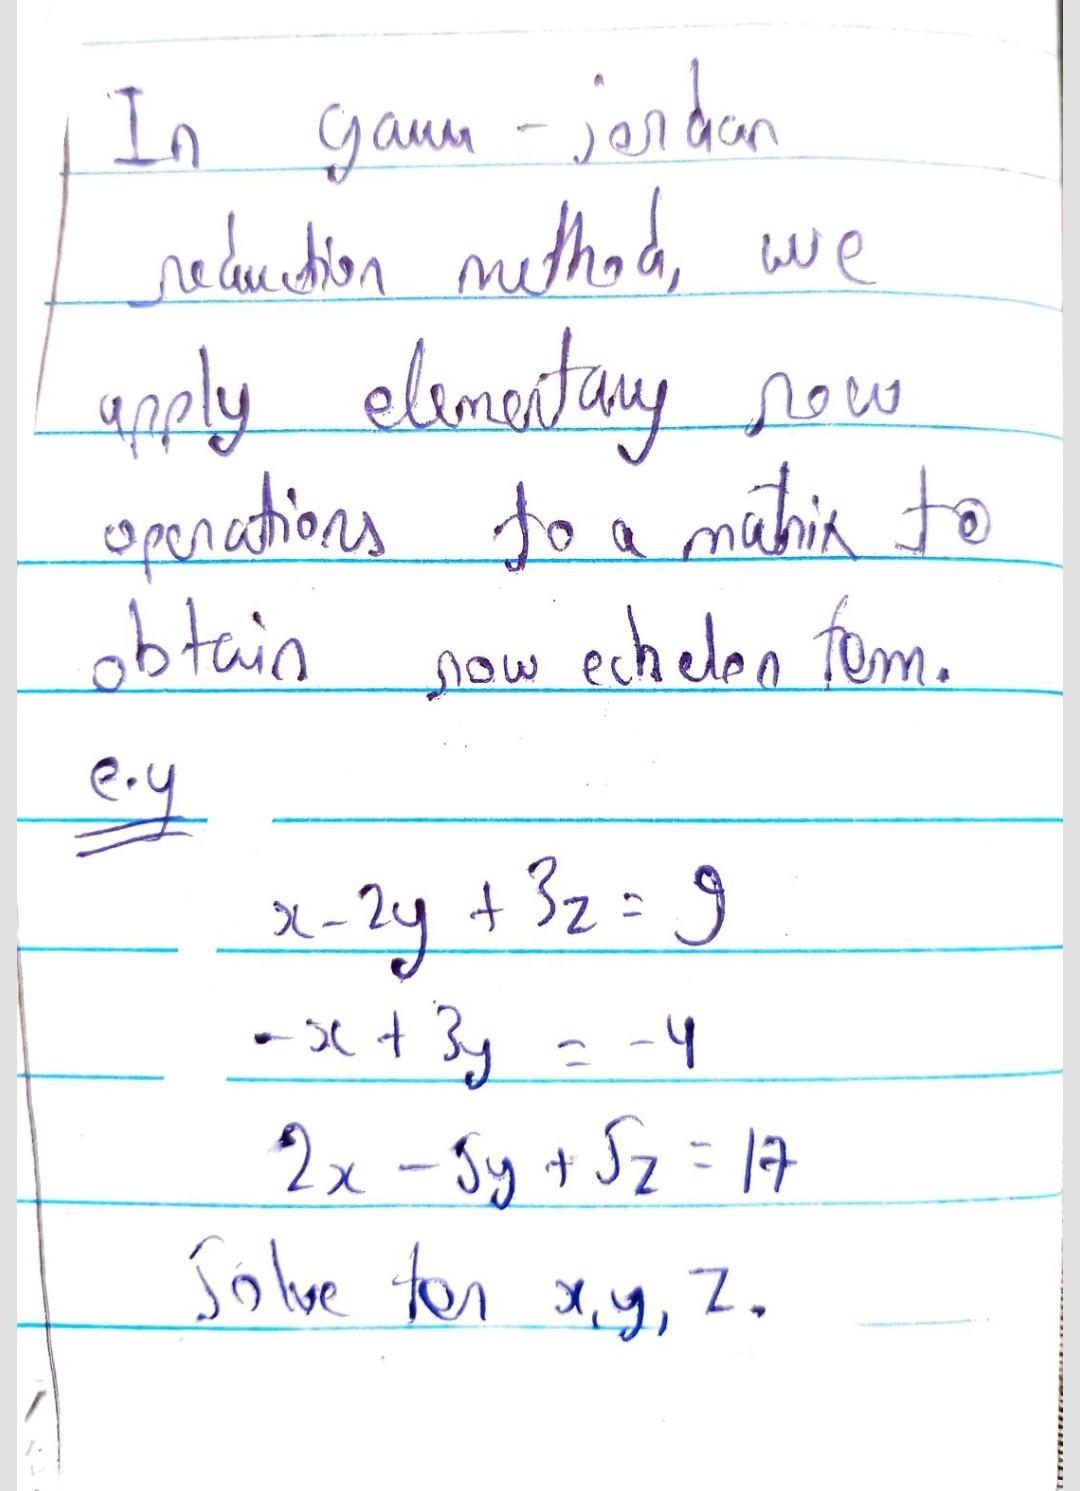 In gauss-jordan
reduction method, we
apply elementary row
operations to a matrix to
obtain row echelon form.
e.g
x-2y + 3z = 9
-x + 3y = -4
2x - 5y + 5z = 17
Solve for x, y, z.